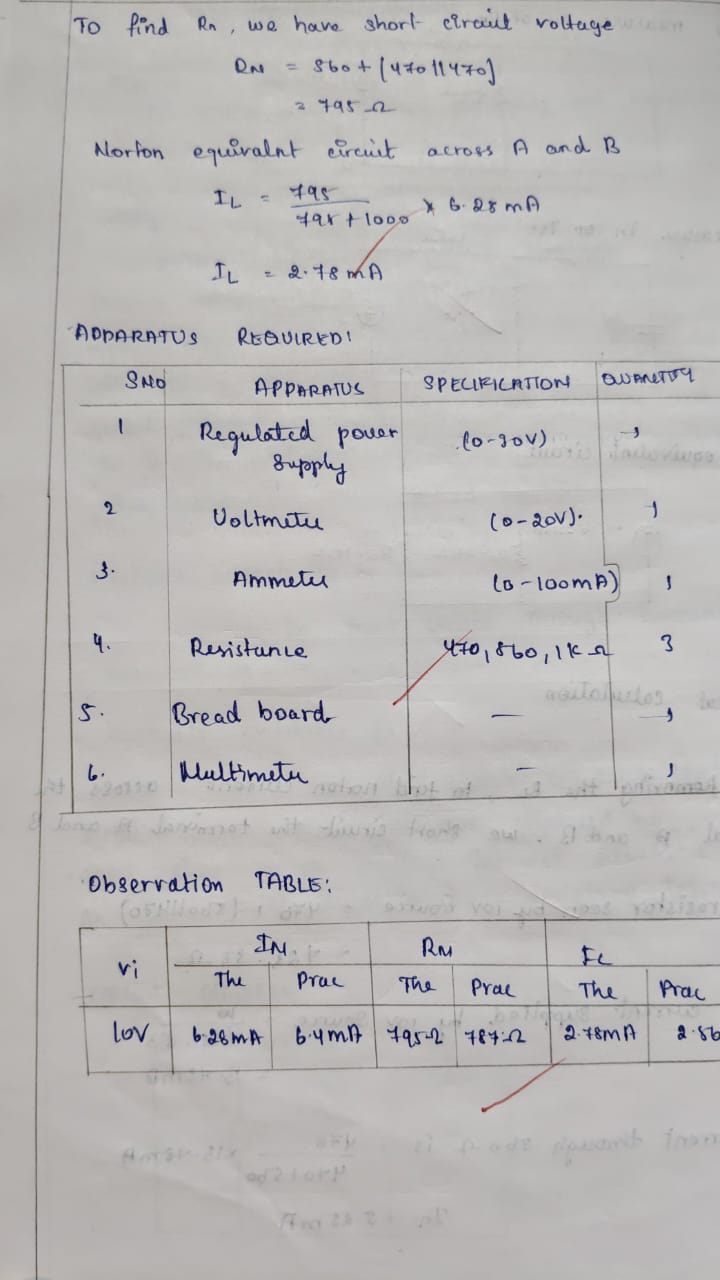 To find Rn, we have short circuit voltage
RN = 560 + [470 || 470]
= 795 Ω
Norton equivalnt circuit across A and B
IL = 795 / 795 + 1000 × 6.28 mA
IL = 2.78 mA
APPARATUS REQUIRED:
SNO APPARATUS SPECIFICATION QUANTITY
1 Regulated power supply (0-30V) 1
2 Voltmeter (0-20V). 1
3. Ammeter (0-100mA) 1
4. Resistance 470, 560, 1K Ω 3
5. Bread board — 1
6. Multimeter — 1
Observation TABLE:
Vi IN RN IL
The Prac The Prac The Prac
10V 6.28mA 6.4mA 795Ω 787Ω 2.78mA 2.56